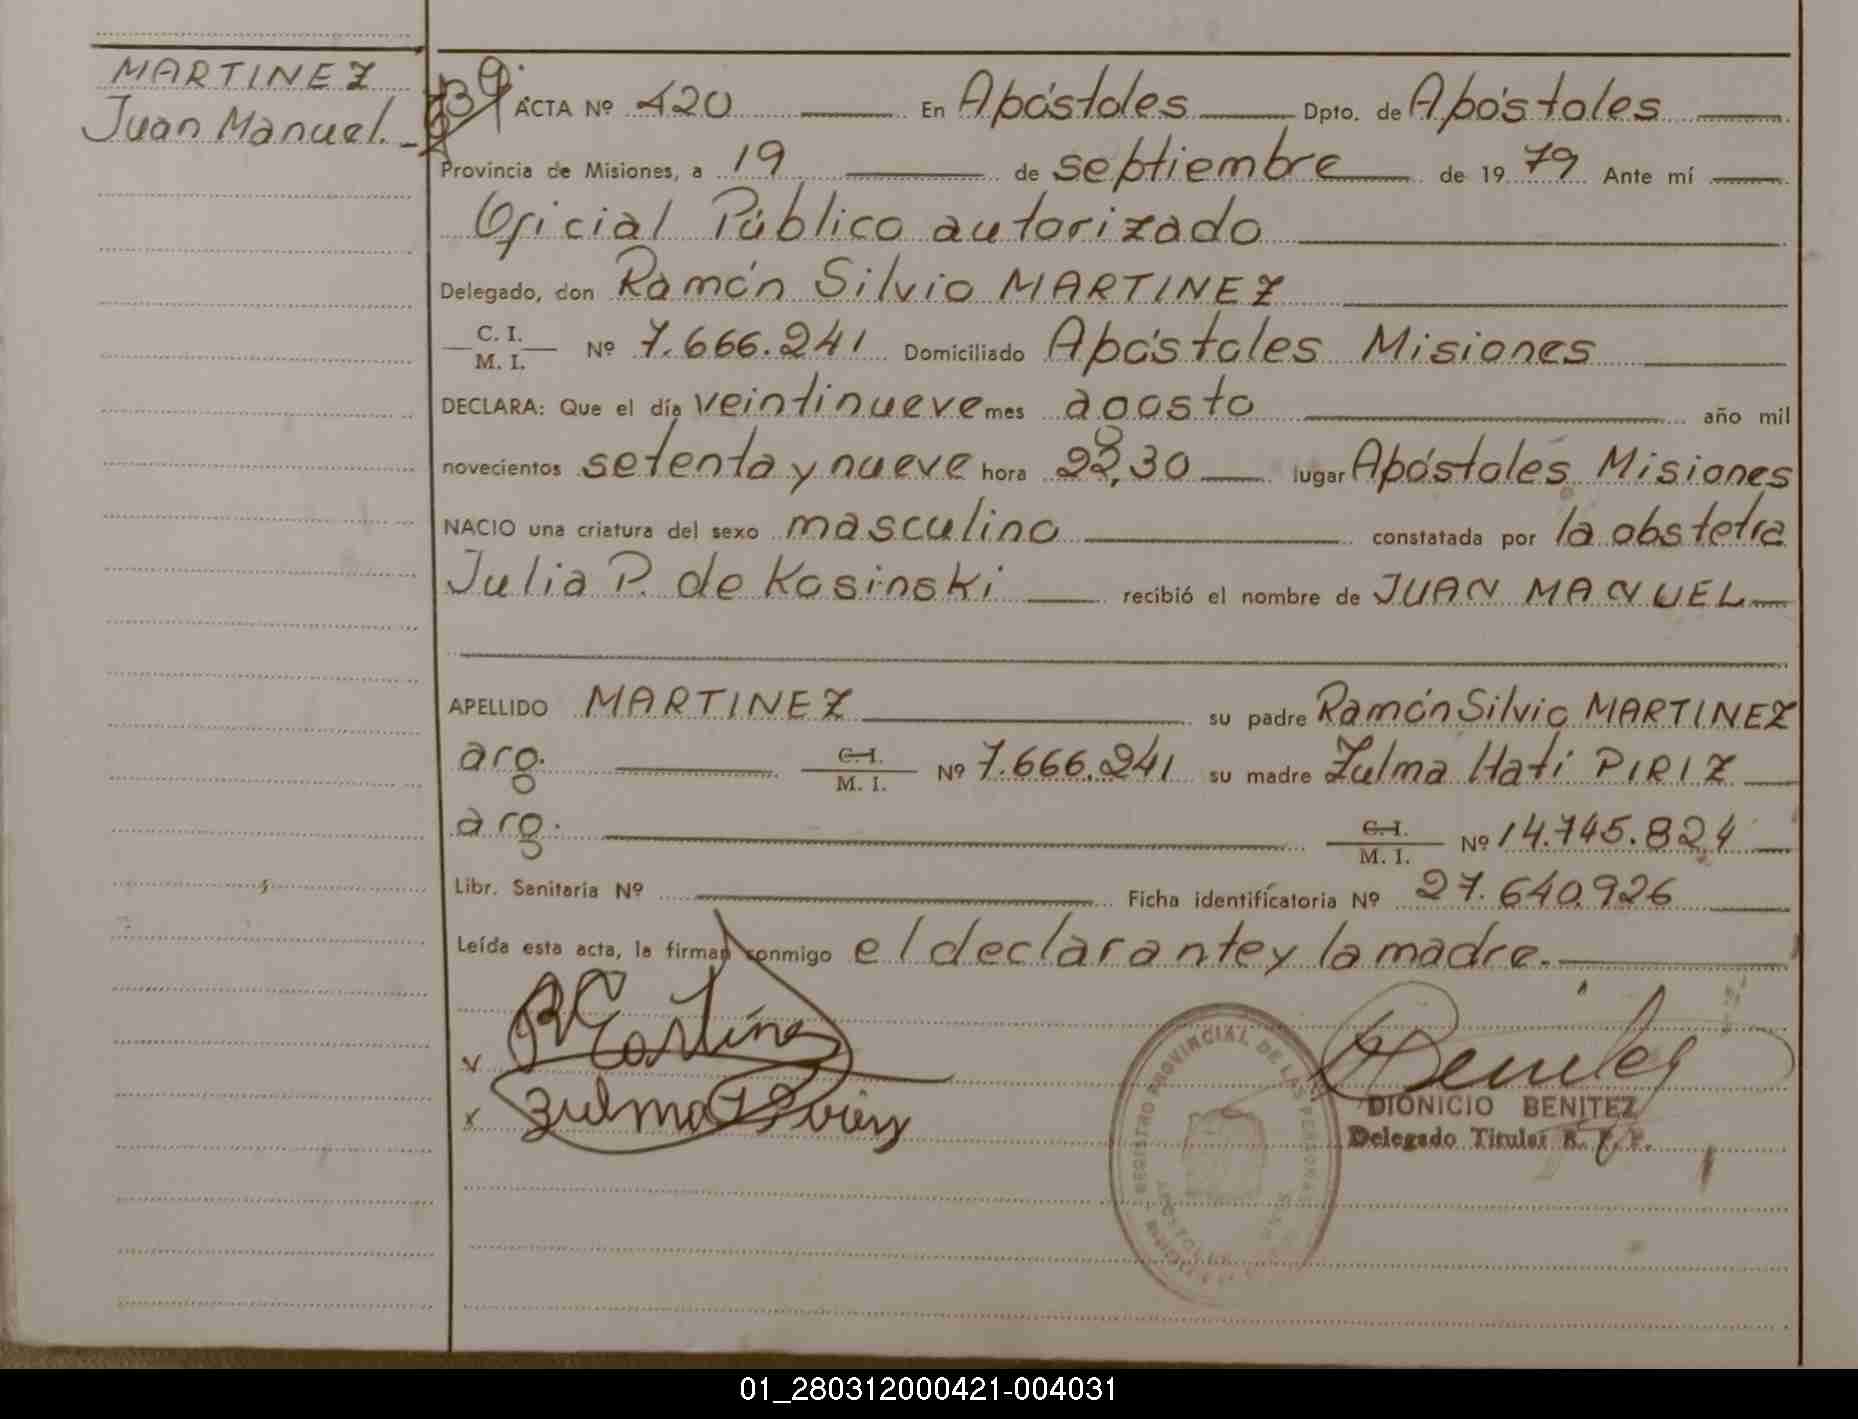 MARTINEZ
Juan Manuel.-
ACTA Nº 420 En Apóstoles Dpto. de Apóstoles
Provincia de Misiones, a 19 de septiembre de 1979 Ante mí
Oficial Público autorizado
Delegado, don Ramón Silvio MARTINEZ
C. I.
M. I.
Nº 7.666.241 Domiciliado Apóstoles Misiones
DECLARA: Que el día veintinueve mes agosto año mil
novecientos setenta y nueve hora 22,30 lugar Apóstoles Misiones
NACIO una criatura del sexo masculino constatada por la obstetra
Julia P. de Kosinski recibió el nombre de JUAN MANUEL
APELLIDO MARTINEZ su padre Ramón Silvio MARTINEZ
arg. C. I. M. I. Nº 7.666.241 su madre Zulma Hati PIRIZ
arg. C. I. M. I. Nº 14.745.824
Libr. Sanitaria Nº Ficha identificatoria Nº 27.640.926
Leída esta acta, la firman conmigo el declarante y la madre.
Zulma
Benitez
DIONICIO BENITEZ
Delegado Titular R. P. P.
REGISTRO PROVINCIAL DE LAS PERSONAS
APOSTOLES
MISIONES
01_280312000421-004031